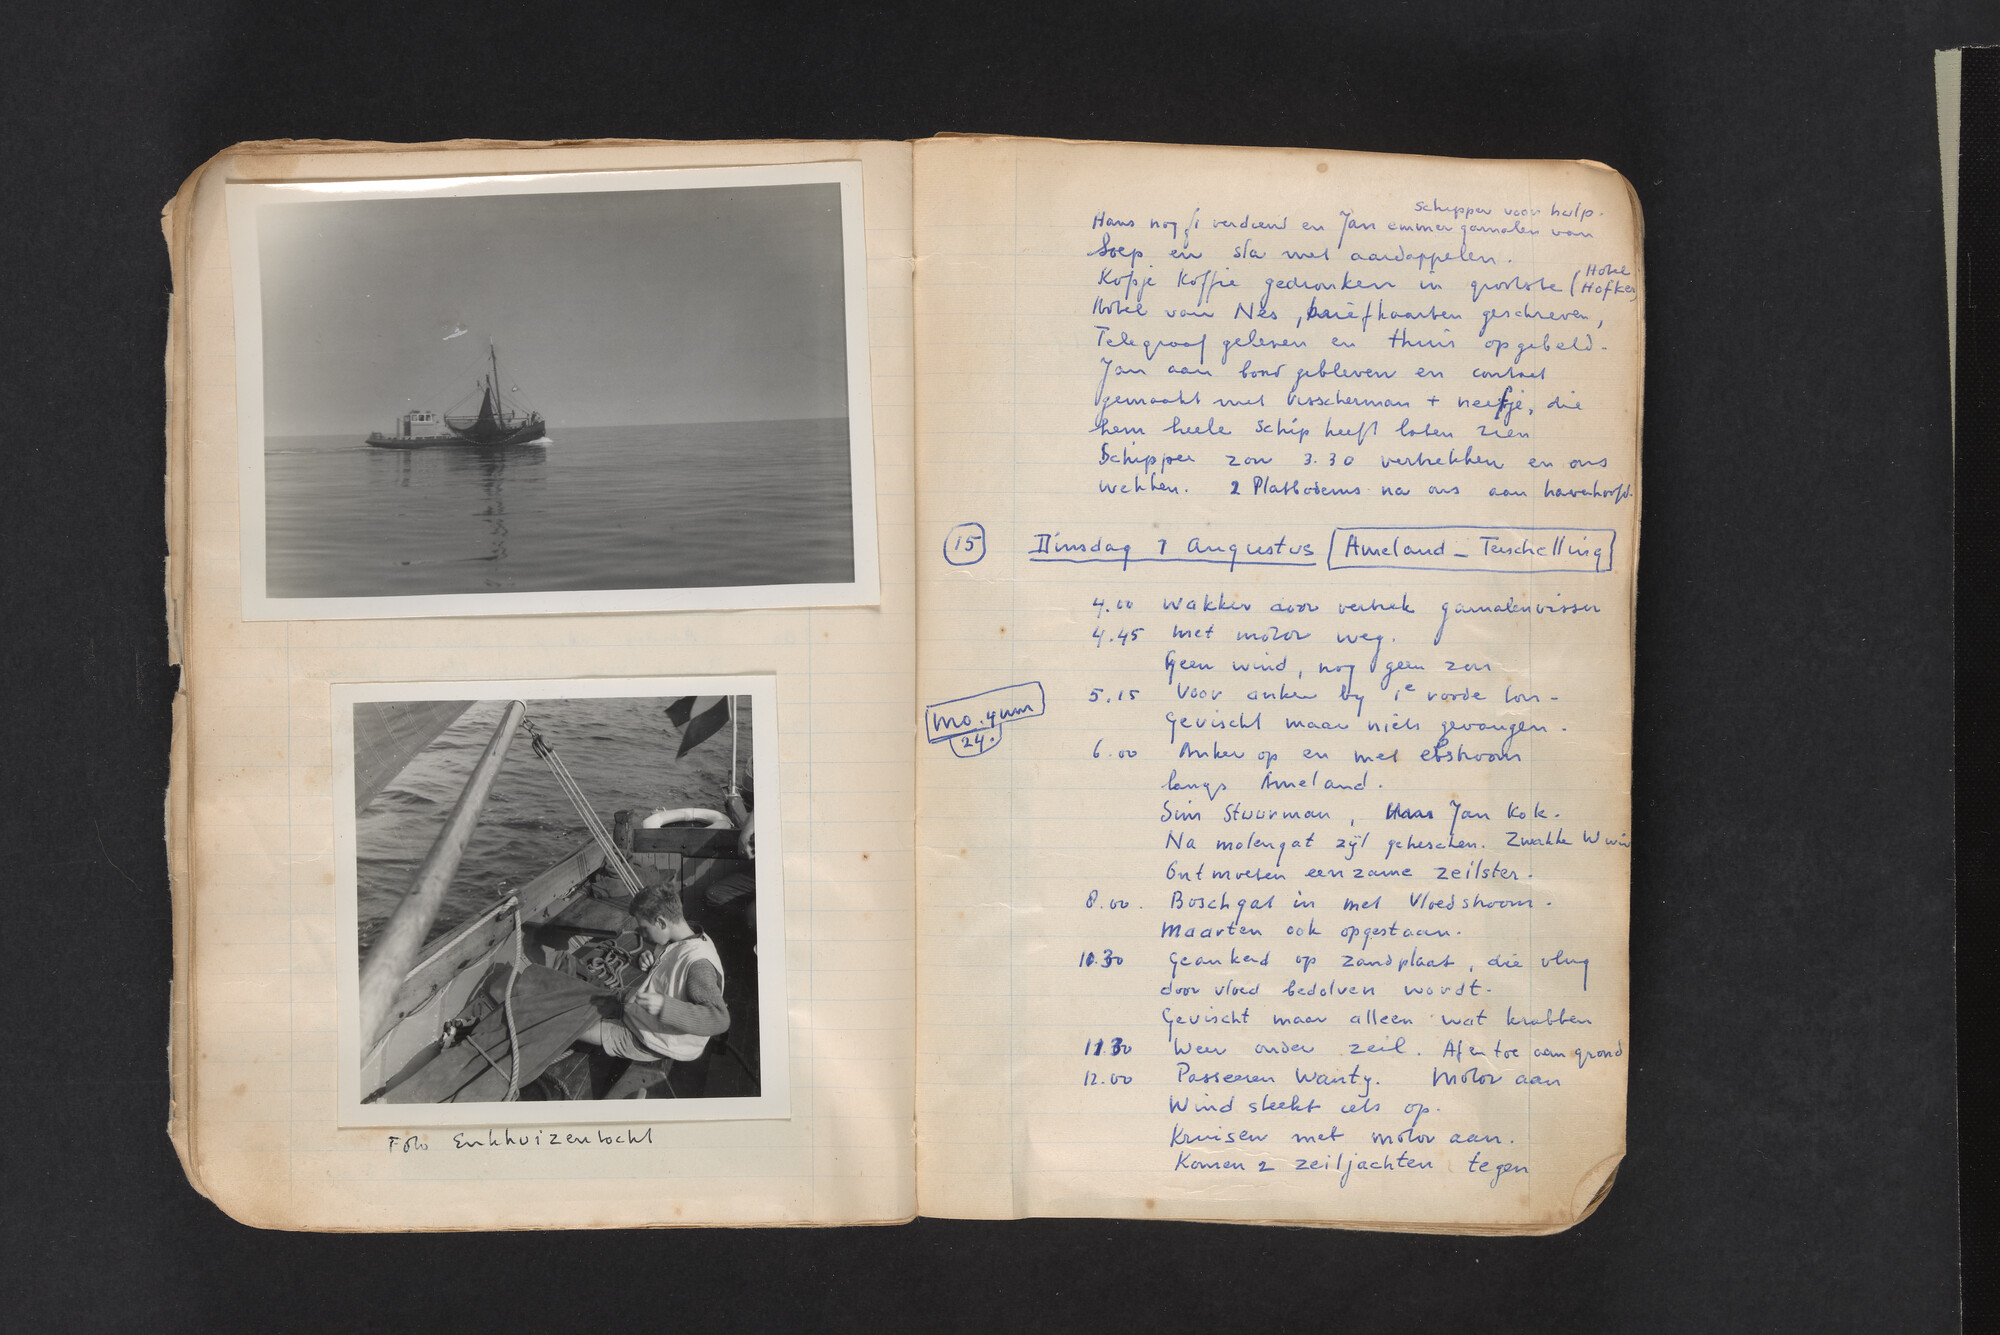 Foto Enkhuizentocht
schipper voor hulp.
Hans nog fl verdiend en Jan emmer garnalen van
Soep en sla met aardappelen.
Kopje Koffie gedronken in grootste (Hotel Hofker)
Hotel van Nes, briefkaarten geschreven,
Telegraaf gelezen en thuis opgebeld.
Jan aan boord gebleven en contact
gemaakt met visscherman + neefje, die
hem heele schip heeft laten zien
Schipper zou 3.30 vertrekken en ons
wekken. 2 Platbodems na ons aan havenhoofd.
15 Dinsdag 7 Augustus Ameland - Terschelling
4.00 Wakker door vertrek garnalenvisser
4.45 Met motor weg.
Geen wind, nog geen zon
5.15 Voor anker by 1e roode ton -
Gevischt maar niets gevangen.
mo. 4 mm
24.
6.00 Anker op en met ebstroom
langs Ameland.
Sim Stuurman, Jan Kok.
Na molengat zijl geheschen. Zwakke W win
Ontmoeten eenzame zeilster.
8.00. Boschgat in met Vloedstroom.
Maarten ook opgestaan.
10.30 Geankerd op zandplaat, die vlug
door vloed bedolven wordt.
Gevischt maar alleen wat krabben
11.30 Weer onder zeil. Af en toe aan grond
12.00 Passeeren Wanty. Motor aan
Wind steekt iets op.
Kruisen met motor aan.
Komen 2 zeiljachten tegen